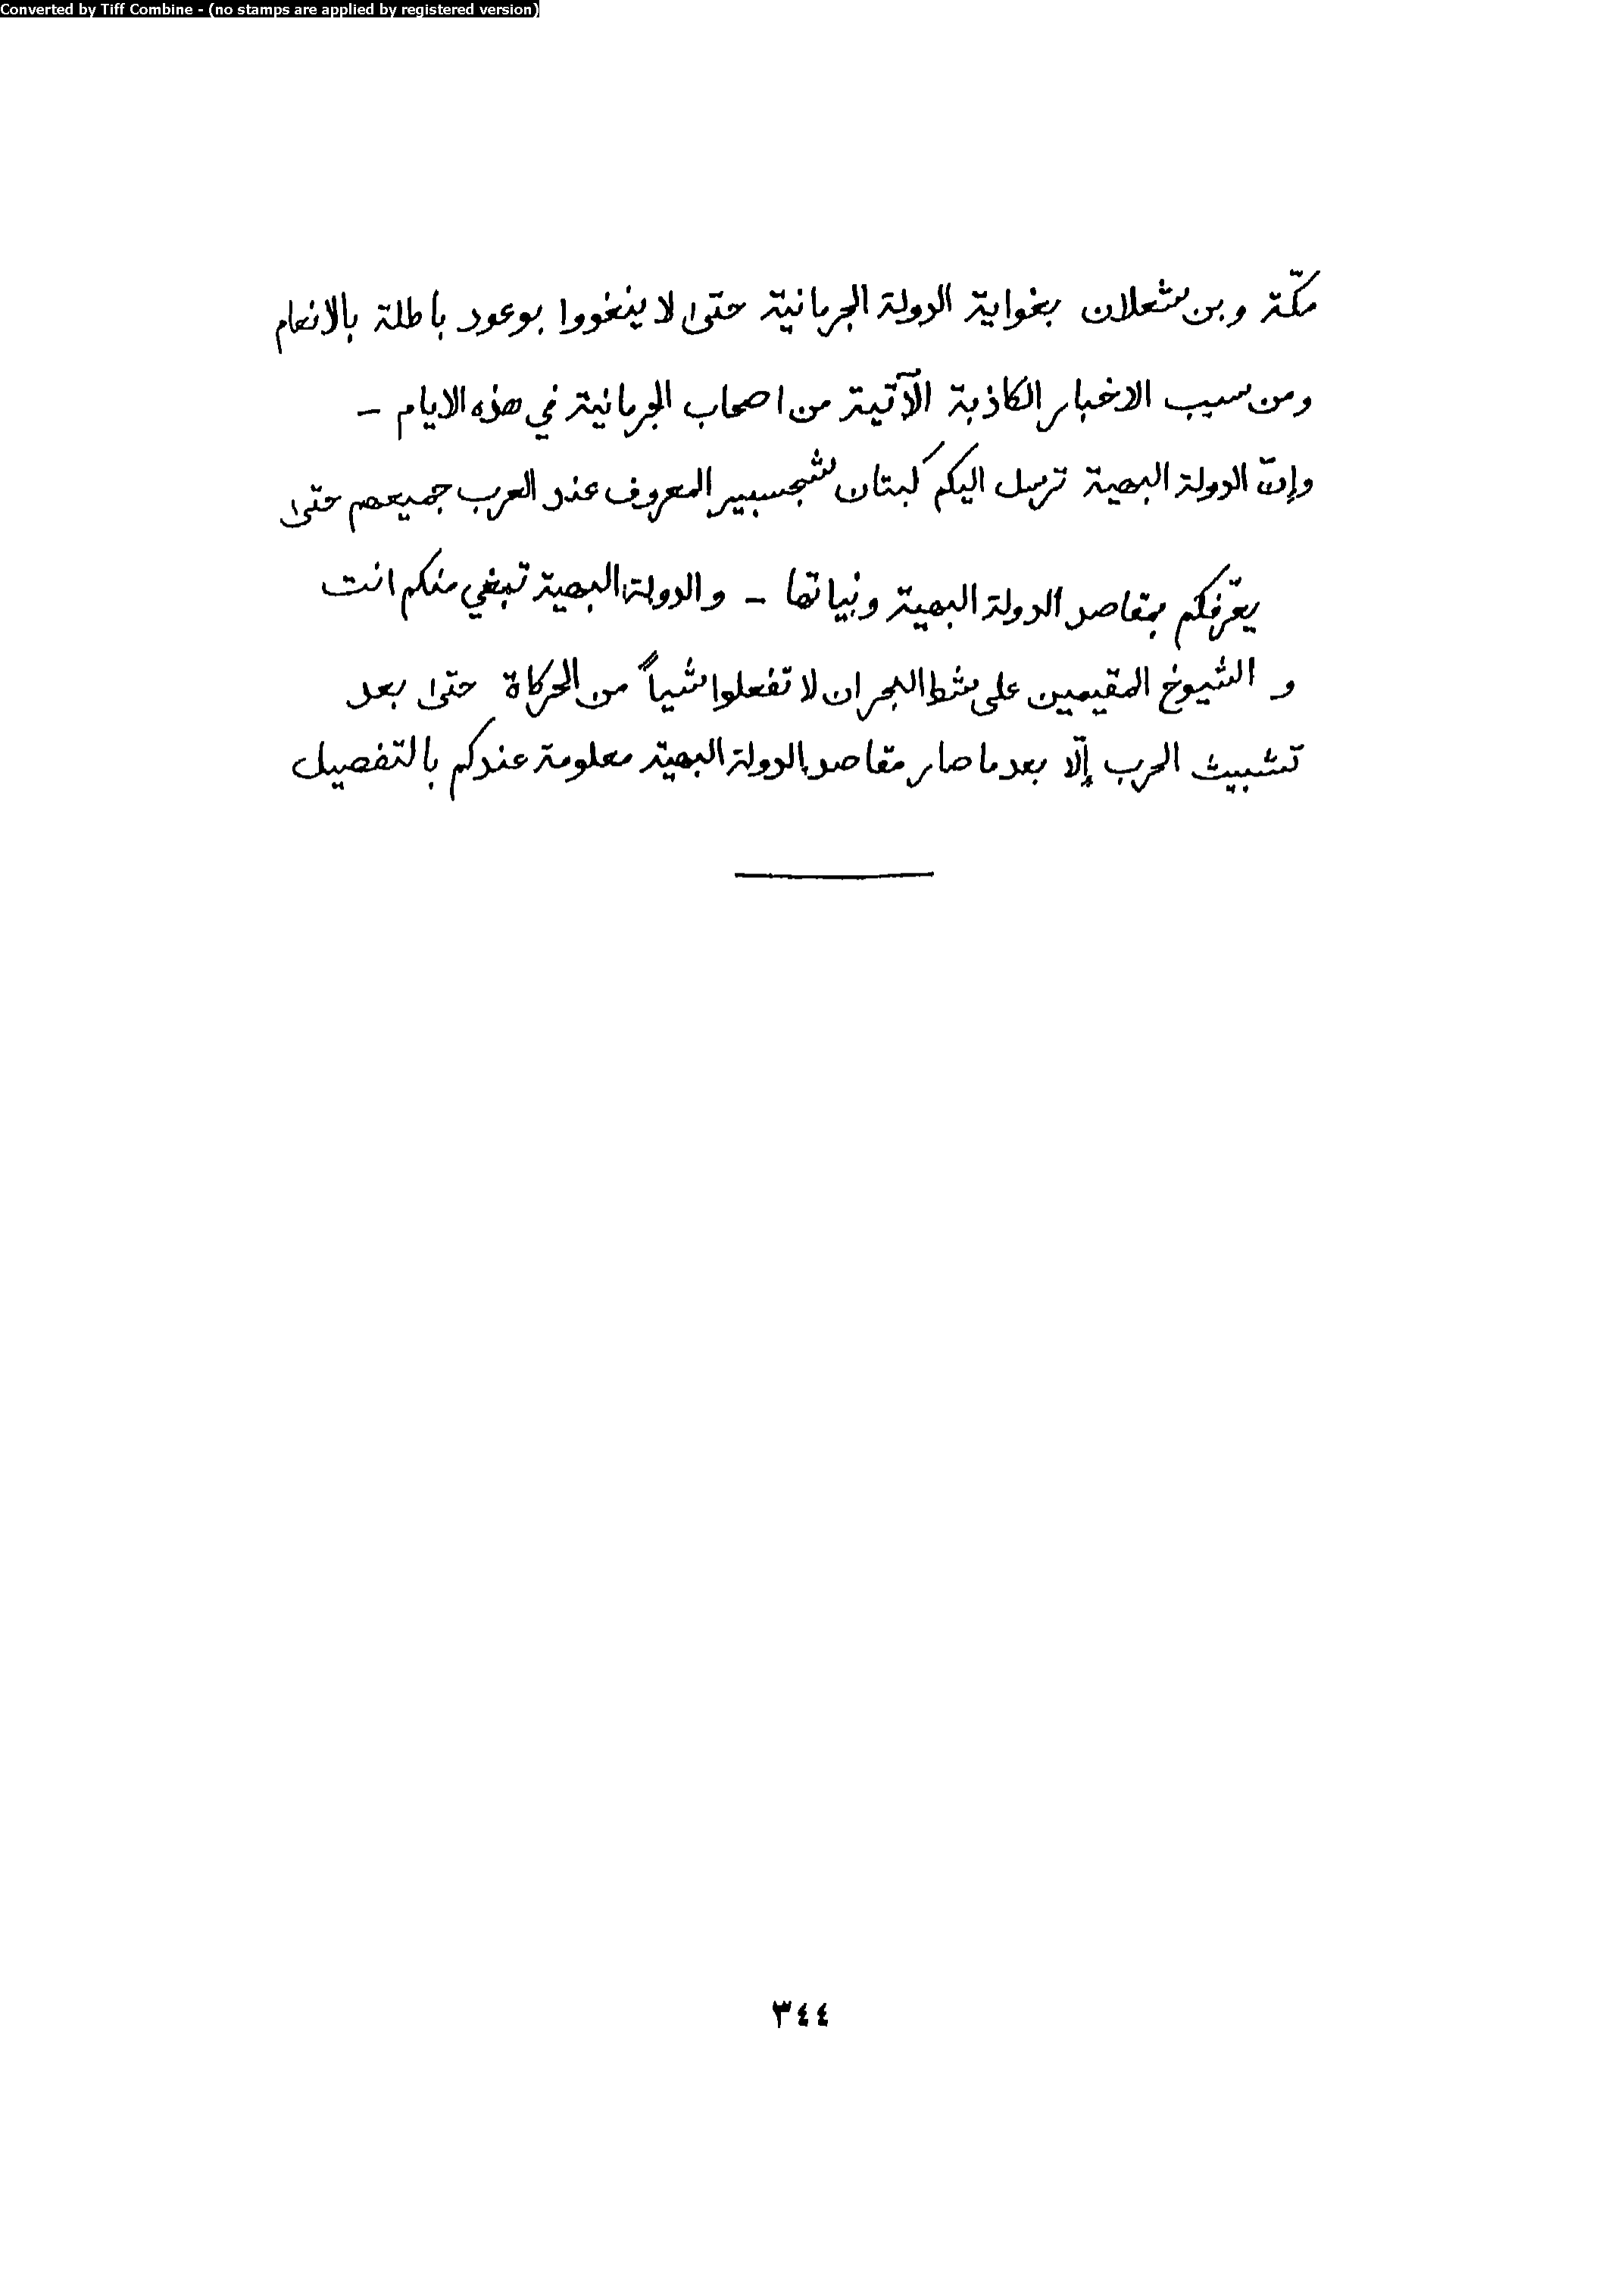 Converted by Tiff Combine - (no stamps are applied by registered version)
مكّة وبن شعلان بغواية الدولة الجرمانية حتى لا ينغووا بوعود باطلة بالانعام
ومن سبب الاخبار الكاذبة الآتية من اصحاب الجرمانية في هذه الايام –
وإنّ الدولة البهية ترسل اليكم كبتان شجسبير المعروف عند العرب جميعهم حتى
يعرّفكم بمقاصد الدولة البهية ونياتها – والدولة البهية تبغي منكم انت
و الشيوخ المقيمين على شط البحر ان لا تفعلوا شياً من الحركاة حتى بعد
تشبيث الحرب إلّا بعد ما صار مقاصد الدولة البهية معلومة عندكم بالتفصيل
٣٤٤